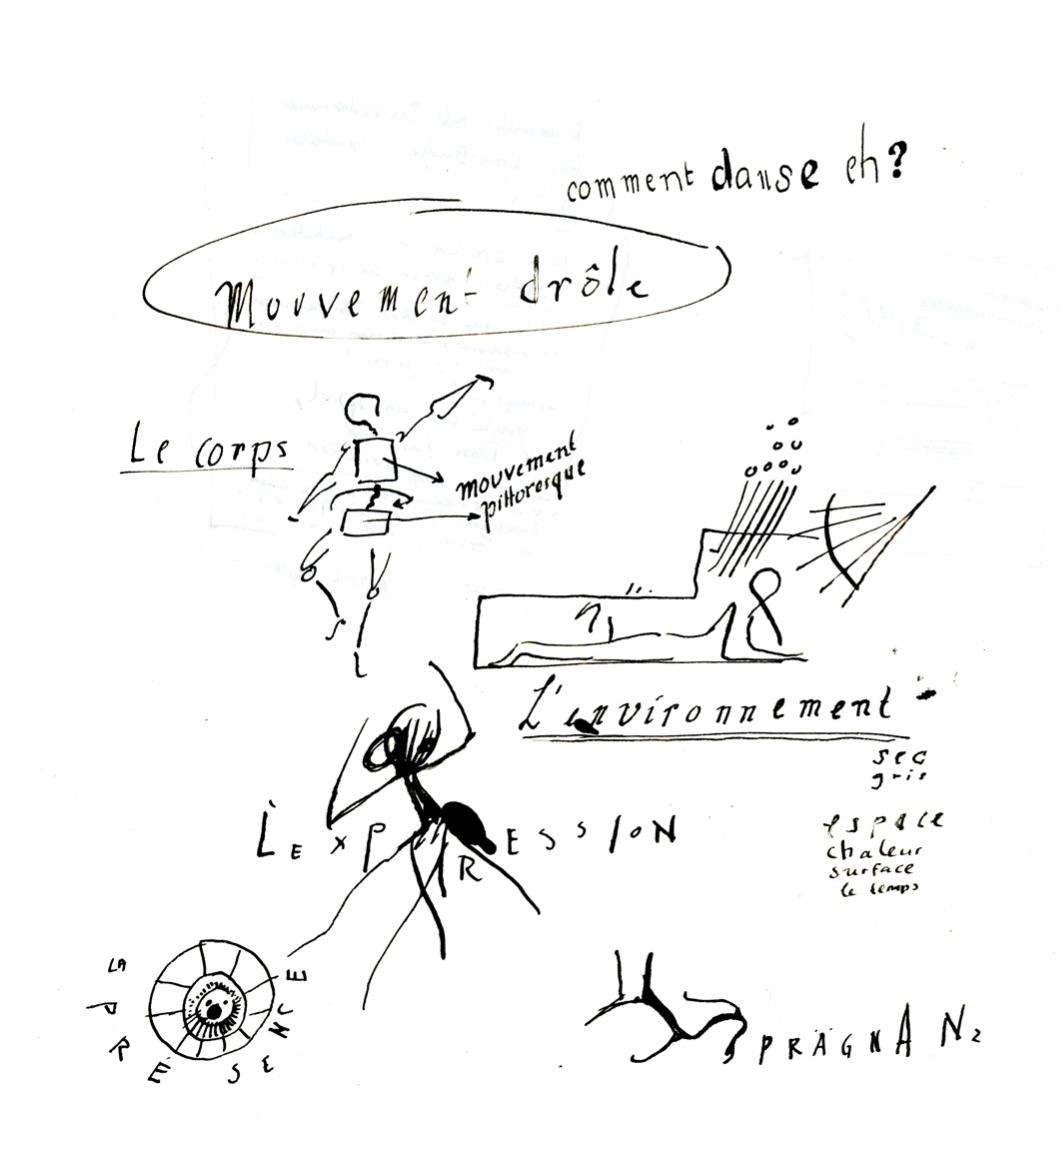 comment danse eh?
Mouvement drôle
Le corps
mouvement
pittoresque
L'environnement
sec
gris
L'EXPRESSION
espace
chaleur
surface
le temps
LA PRÉSENCE
PRÄGNANZ